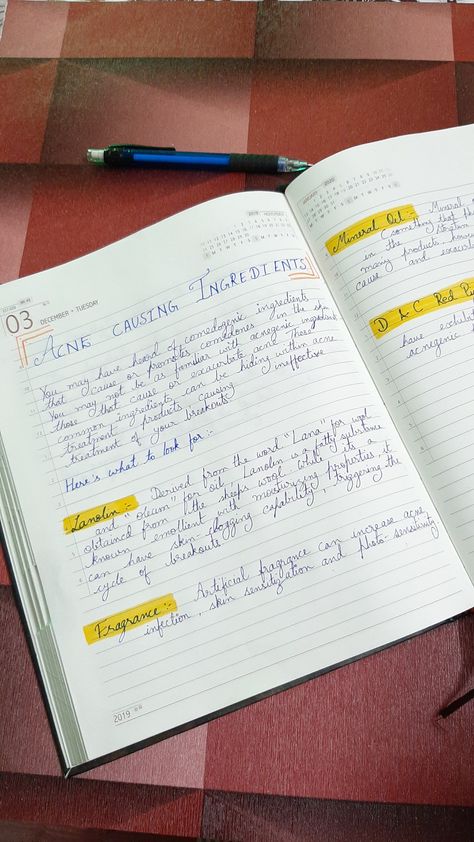 2019
NOVEMBER
JANUARY
2020
03
DECEMBER • TUESDAY
ACNE CAUSING INGREDIENTS
You may have heard of comedogenic ingredients
that cause or promotes comedones in the skin
You may not be as familiar with acnegenic ingredient
those that cause or exacerbate acne These
common ingredients can be hiding within acne
treatment products causing ineffective
treatment of your breakouts
Here's what to look for :-
Lanolin :- Derived from the word "Lana" for wool
and "oleum" for oil, Lanolin is a fatty substance
obtained from the sheeps wool. While its a
known emollient with moisturizing properties, it
can have skin-clogging capability, triggering the
cycle of breakouts
Fragrance :- Artificial fragrance can increase acne
infection, skin sensitization and photo-sensitivity.
2019
Mineral Oil :- Mineral
(something that
in the
many products, how
cause and exace
D & C Red
have exhibit
acnegenic